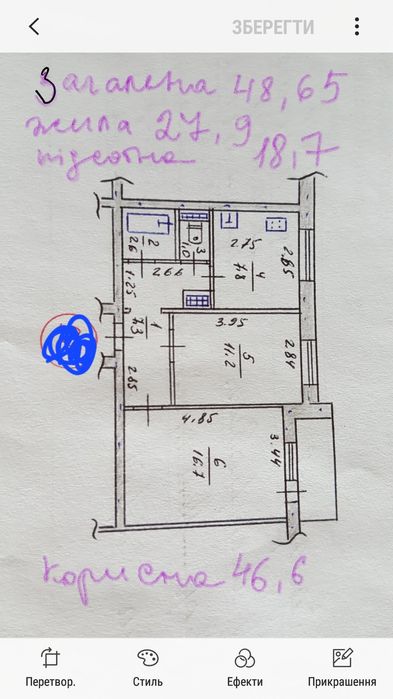 ЗБЕРЕГТИ
Загальна 48,65
жила 27,9
підсобна 18,7
2
2.6
3
1.0
2.75
4
7.8
2.65
2.66
1.25
1
7.3
3.95
5
11.2
2.84
2.85
4.85
6
16.7
3.44
Корисна 46,6
Перетвор.
Стиль
Ефекти
Прикрашання